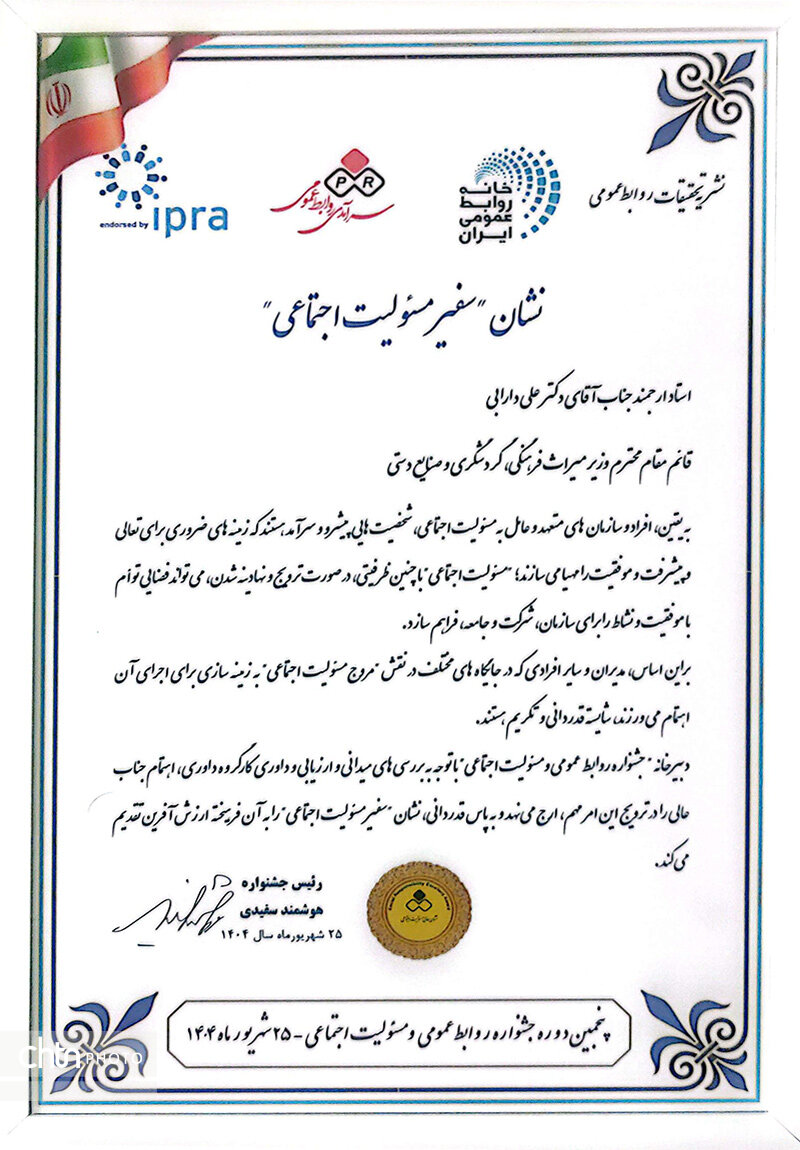 نشریه تحقیقات روابط عمومی
خانه
روابط
عمومی
ایران
PR
سرآمدی روابط عمومی
endorsed by ipra
نشان "سفیر مسئولیت اجتماعی"
استاد ارجمند جناب آقای دکتر علی دارابی
قائم مقام محترم وزیر میراث فرهنگی، گردشگری و صنایع دستی
به یقین، افراد و سازمان های متعهد و عامل به مسئولیت اجتماعی، شخصیت هایی پیشرو و سرآمد هستند که زمینه های ضروری برای تعالی
و پیشرفت و موفقیت را مهیا می سازند؛ "مسئولیت اجتماعی" با چنین ظرفیتی، در صورت ترویج و نهادینه شدن، می تواند فضایی توأم
با موفقیت و نشاط را برای سازمان، شرکت و جامعه، فراهم سازد.
براین اساس، مدیران و سایر افرادی که در جایگاه های مختلف در نقش "مروج مسئولیت اجتماعی" به زمینه سازی برای اجرای آن
اهتمام می ورزند، شایسته قدردانی و تکریم هستند.
دبیرخانه "جشنواره روابط عمومی و مسئولیت اجتماعی" با توجه به بررسی های میدانی و ارزیابی و داوری کارگروه داوری، اهتمام جناب
عالی را در ترویج این امر مهم، ارج می نهد و به پاس قدردانی، نشان "سفیر مسئولیت اجتماعی" را به آن فرهیخته ارزش آفرین تقدیم
می کند.
رئیس جشنواره
هوشمند سفیدی
۲۵ شهریورماه سال ۱۴۰۴
پنجمین دوره جشنواره روابط عمومی و مسئولیت اجتماعی - ۲۵ شهریور ماه ۱۴۰۴
chtn PHOTO